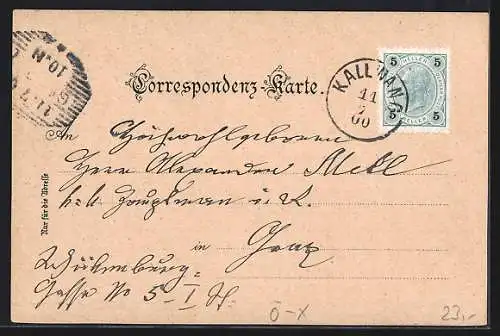 10.M
Correspondenz-Karte.
5 HELLER 5
KALLWANG
11
7
00
5 HELLER 5
An Hochwohlgeboren
Herrn Alexander
k. k. Hauptmann i. R.
Nur für die Adresse
in Graz
Gasse No 5-I St.
Ö-X
23,-